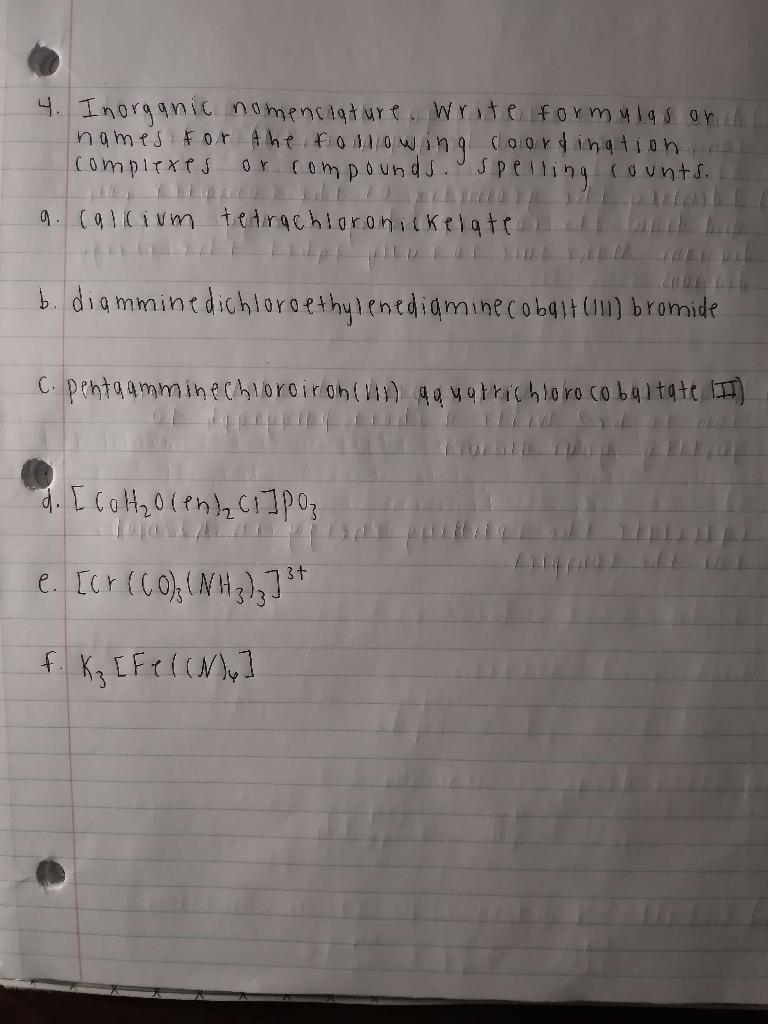 4. Inorganic nomenclature. Write formulas or
names for the following coordination
complexes or compounds. Spelling counts.
a. calcium tetrachloronickelate
b. diamminedichloroethylenediaminecobalt(III) bromide
c. pentaamminechloroiron(III) aquatrichlorocobaltate (II)
d. [CoH₂O(en)₂Cl]PO₃
e. [Cr(CO)₃(NH₃)₃]³⁺
f. K₃[Fe(CN)₆]